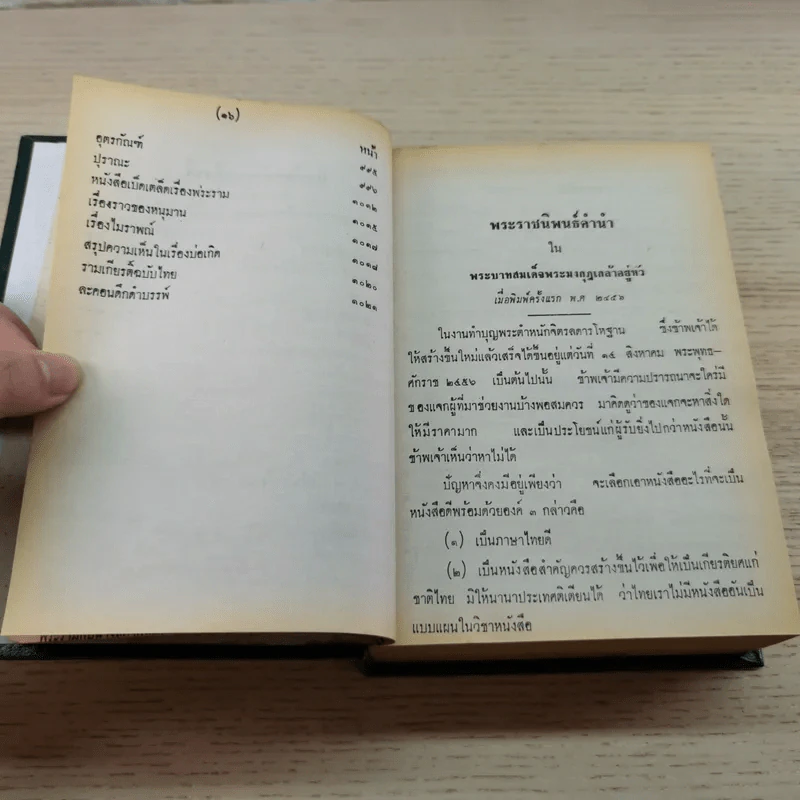 (๑๖)
หน้า
อุตรกัณฑ์ ๙๙๕
ปุราณะ ๙๙๖
หนังสือเบ็ดเตล็ดเรื่องพระราม ๑๐๑๒
เรื่องราวของหนุมาน ๑๐๑๕
เรื่องไมราพณ์ ๑๐๑๗
สรุปความเห็นในเรื่องบ่อเกิด ๑๐๑๘
รามเกียรติ์ฉบับไทย ๑๐๒๐
ละคอนดึกดำบรรพ์ ๑๐๒๑
พระราชนิพนธ์คำนำ
ใน
พระบาทสมเด็จพระมงกุฎเกล้าเจ้าอยู่หัว
เมื่อพิมพ์ครั้งแรก พ.ศ ๒๔๕๖
ในงานทำบุญพระตำหนักจิตรลดารโหฐาน ซึ่งข้าพเจ้าได้
ให้สร้างขึ้นใหม่แล้วเสร็จได้ขึ้นอยู่แต่วันที่ ๑๕ สิงหาคม พระพุทธ–
ศักราช ๒๔๕๖ เป็นต้นไปนั้น ข้าพเจ้ามีความปรารถนาจะใคร่มี
ของแจกผู้ที่มาช่วยงานบ้างพอสมควร มาคิดดูว่าของแจกจะหาสิ่งใด
ให้มีราคามาก และเป็นประโยชน์แก่ผู้รับยิ่งไปกว่าหนังสือนั้น
ข้าพเจ้าเห็นว่าหาไม่ได้
ปัญหาจึ่งคงมีอยู่เพียงว่า จะเลือกเอาหนังสืออะไรที่จะเป็น
หนังสือดีพร้อมด้วยองค์ ๓ กล่าวคือ
(๑) เป็นภาษาไทยดี
(๒) เป็นหนังสือสำคัญควรสร้างขึ้นไว้เพื่อให้เป็นเกียรติยศแก่
ชาติไทย มิให้นานาประเทศติเตียนได้ ว่าไทยเราไม่มีหนังสืออันเป็น
แบบแผนในวิชาหนังสือ